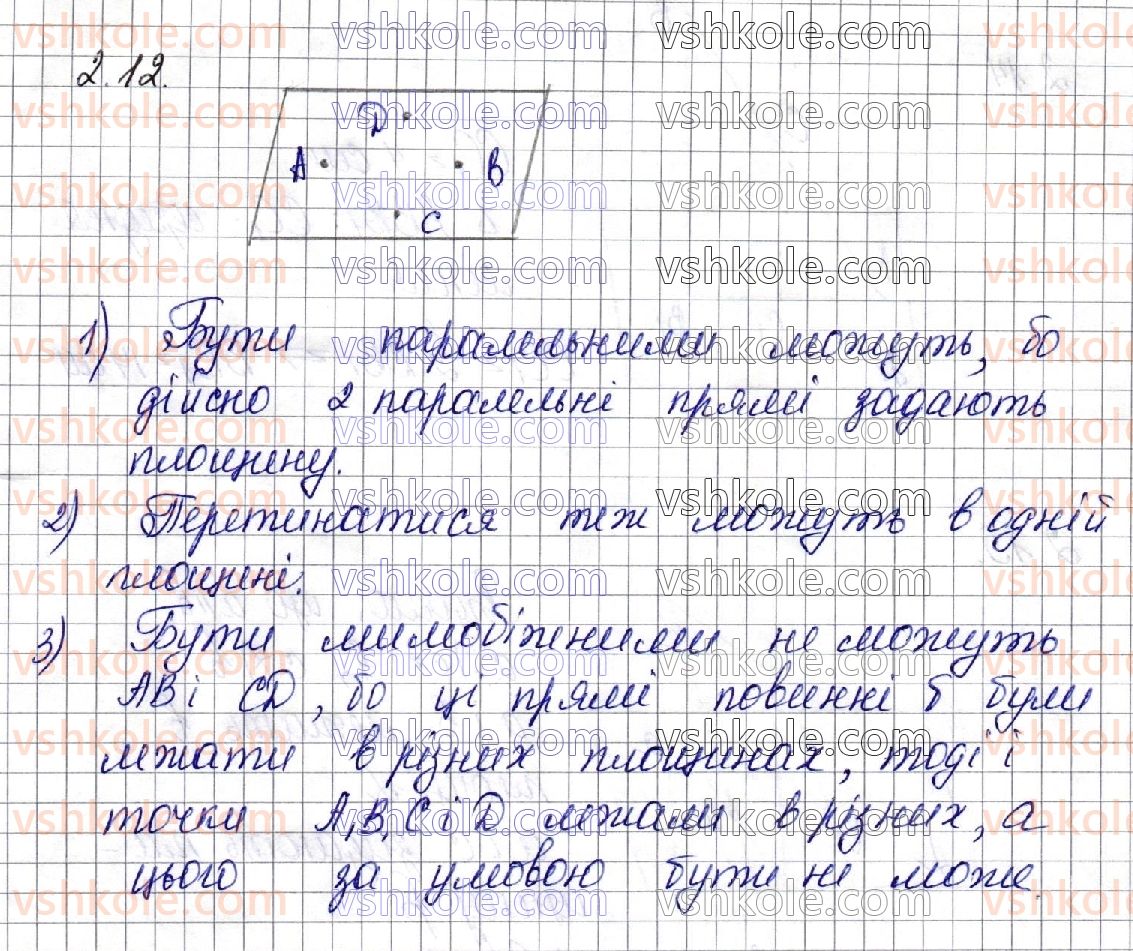 2.12.
D
A B
C
1) Бути паралельними можуть, бо
дійсно 2 паралельні прямі задають
площину.
2) Перетинатися теж можуть в одній
площині.
3) Бути мимобіжними не можуть
AB і CD, бо ці прямі повинні б були
лежати в різних площинах, тоді і
точки A, B, C і D лежали в різних, а
цього за умовою бути не може
vshkole.com